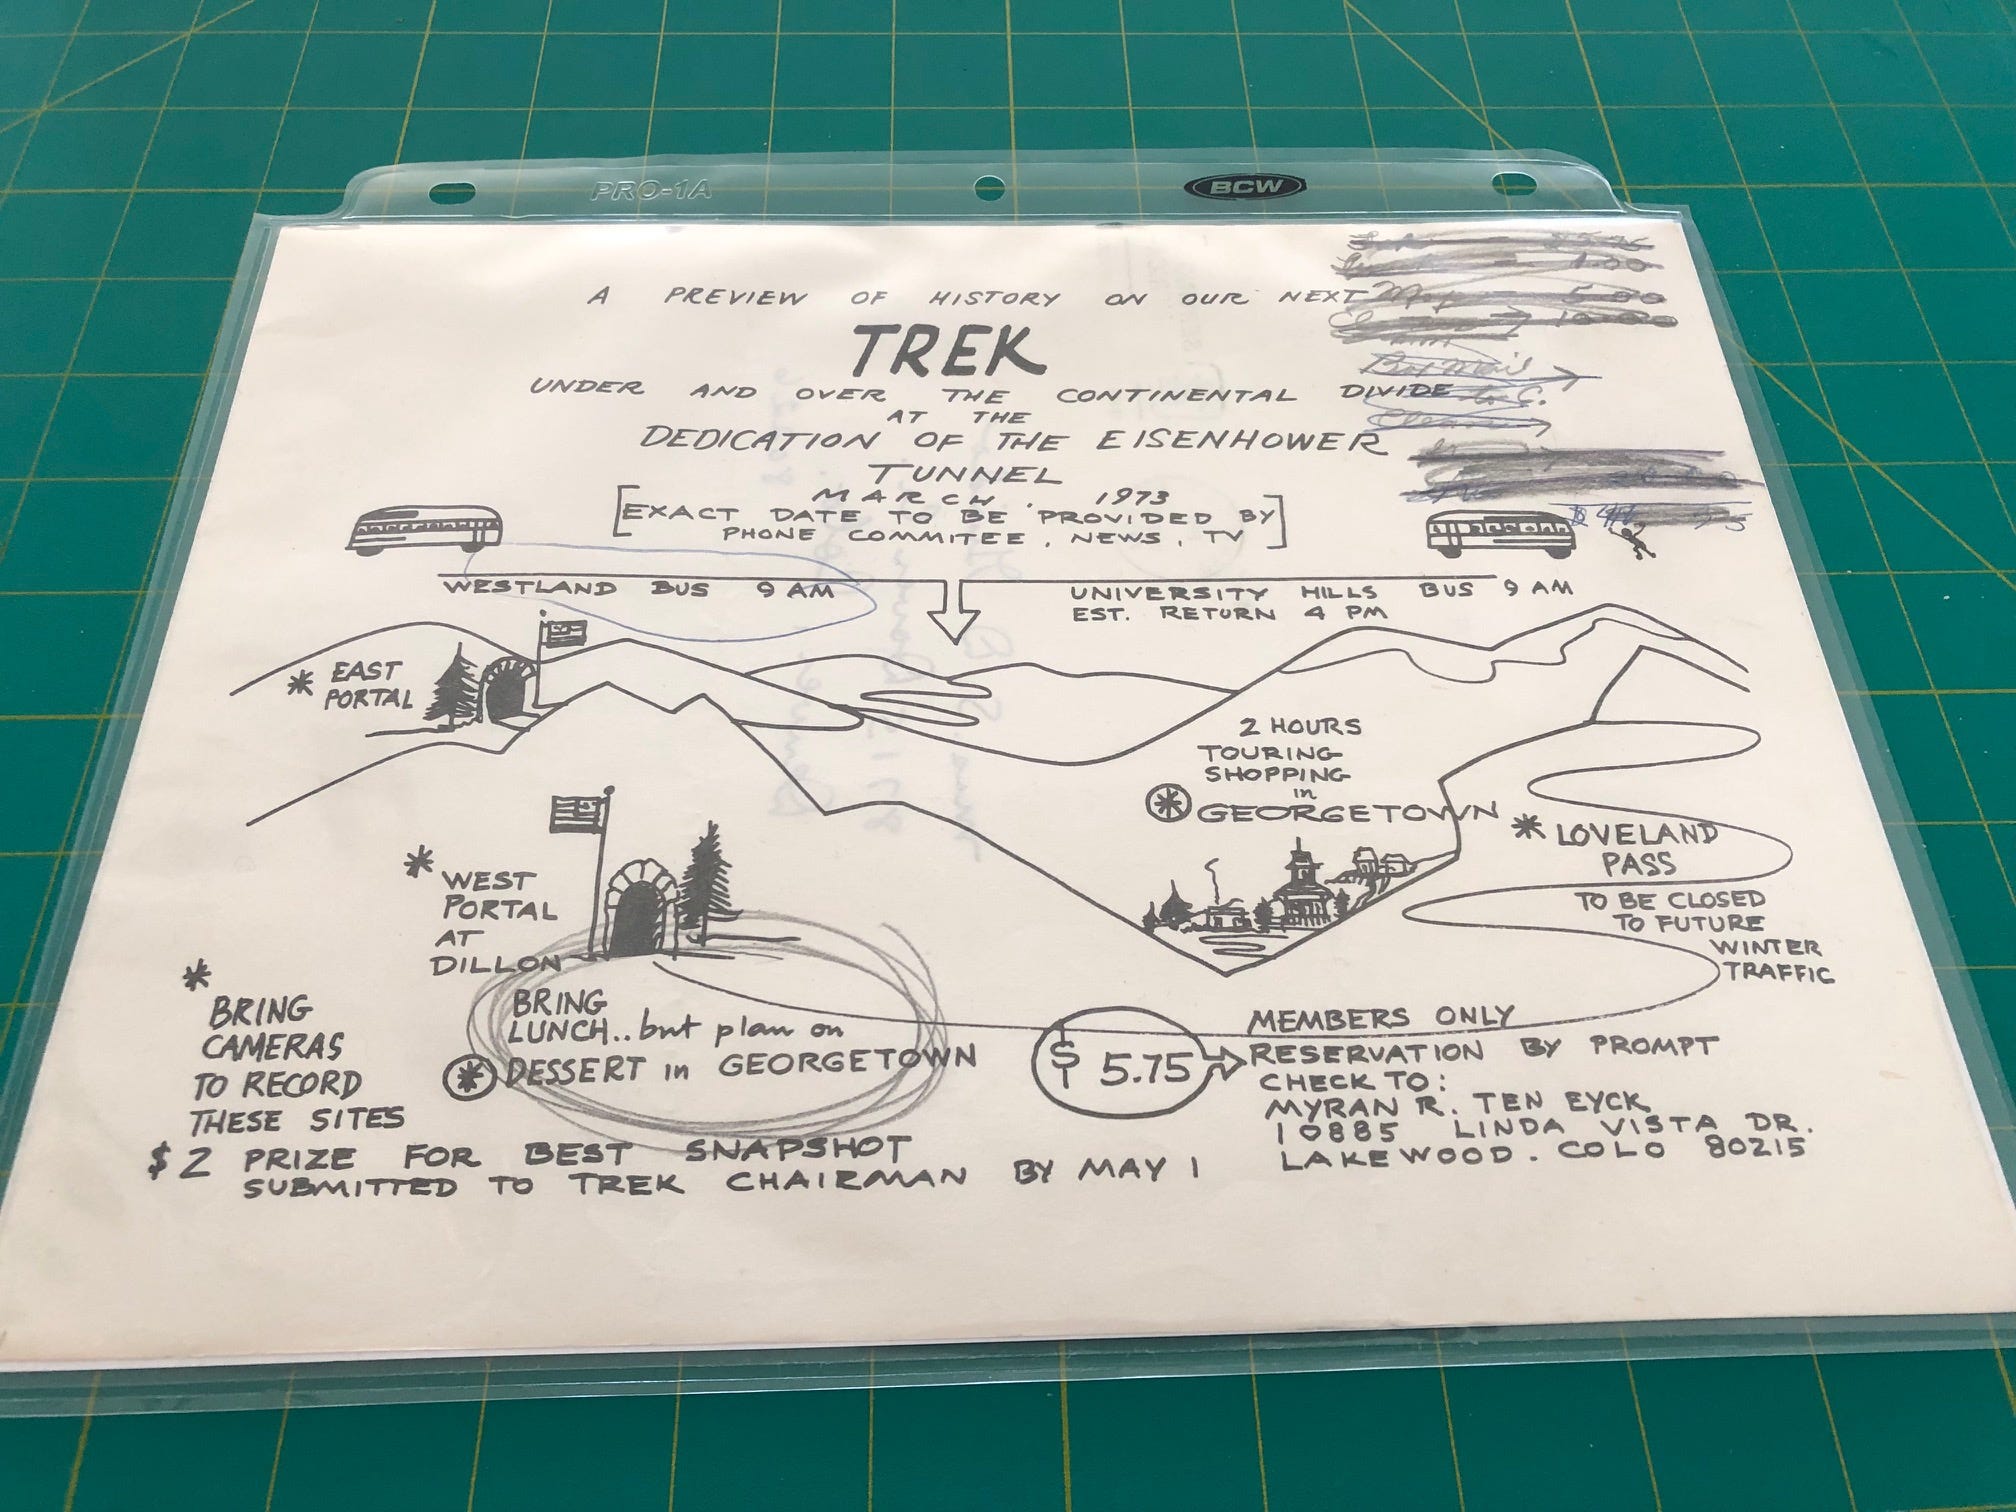 PRO-1A
BCW
A PREVIEW OF HISTORY ON OUR NEXT
TREK
UNDER AND OVER THE CONTINENTAL DIVIDE
AT THE
DEDICATION OF THE EISENHOWER
TUNNEL
MARCH, 1973
[EXACT DATE TO BE PROVIDED BY
PHONE COMMITEE, NEWS, TV]
WESTLAND BUS 9 AM
UNIVERSITY HILLS BUS 9 AM
EST. RETURN 4 PM
* EAST
PORTAL
2 HOURS
TOURING
SHOPPING
in
* GEORGETOWN
* LOVELAND
PASS
TO BE CLOSED
TO FUTURE
WINTER
TRAFFIC
* WEST
PORTAL
AT
DILLON
* BRING
CAMERAS
TO RECORD
THESE SITES
BRING
LUNCH.. but plan on
* DESSERT in GEORGETOWN
$ 5.75
MEMBERS ONLY
RESERVATION BY PROMPT
CHECK TO:
MYRAN R. TEN EYCK
10885 LINDA VISTA DR.
LAKEWOOD. COLO 80215
$2 PRIZE FOR BEST SNAPSHOT
SUBMITTED TO TREK CHAIRMAN BY MAY 1